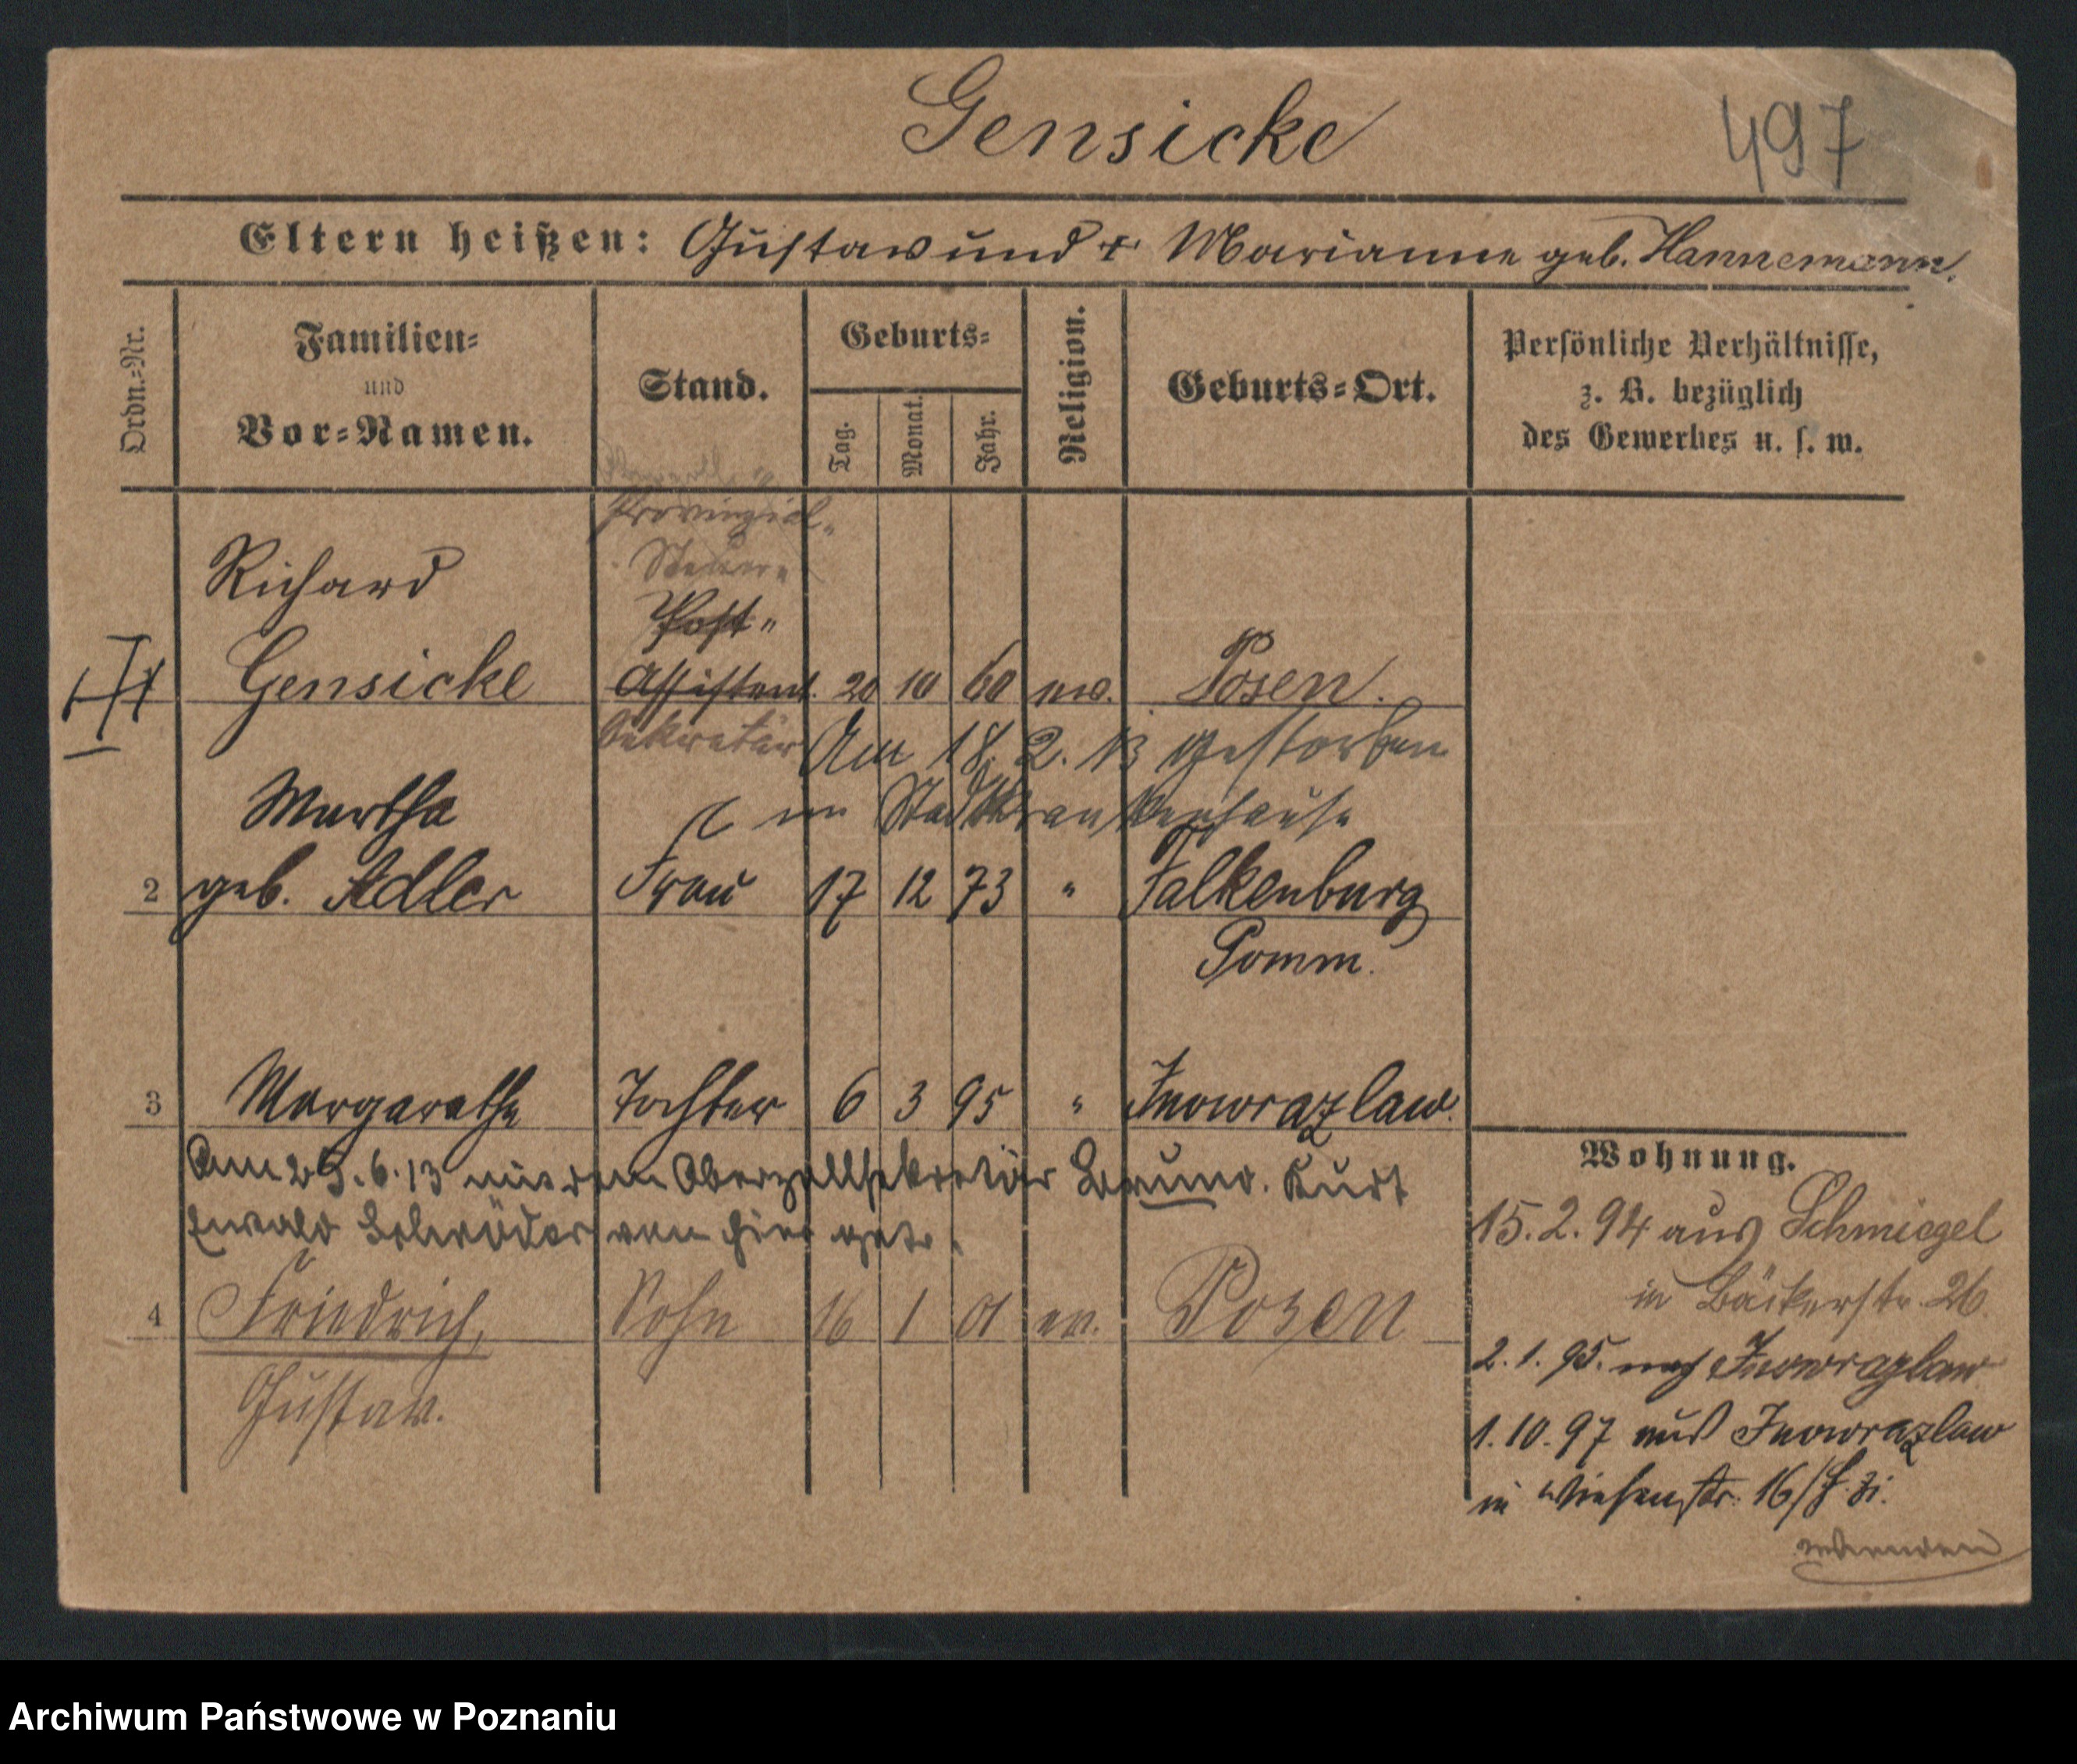 Gensicke
497
Eltern heißen: Gustav und + Marianne geb. Hannemann.
Ordn.-Nr.
Familien-
und
Vor-Namen.
Stand.
Geburts-
Tag.
Monat.
Jahr.
Religion.
Geburts-Ort.
Persönliche Verhältnisse,
z. B. bezüglich
des Gewerbes u. s. w.
Provinzial-
Steuer-
Richard
Post-
Gensicke Assistent. 20 10 60 ev. Posen.
Sekretär
Am 18. 2. 13 gestorben
im Stadtkrankenhause
Martha
2 geb. Adler Frau 17 12 73 " Falkenburg
Pomm.
3 Margarethe Tochter 6 3 95 " Inowrazlaw.
Am 25. 6. 13 mit dem Oberzollsekretär Bruno Kurt
Ewald Schröder von hier getr.
4 Friedrich, Sohn 16 1 01 ev. Posen
Gustav.
Wohnung.
15. 2. 94 aus Schmiegel
in Bäckerstr. 26.
2. 1. 95. nach Inowrazlaw
1. 10. 97 aus Inowrazlaw
in Wiesenstr. 16/
wenden
Archiwum Państwowe w Poznaniu